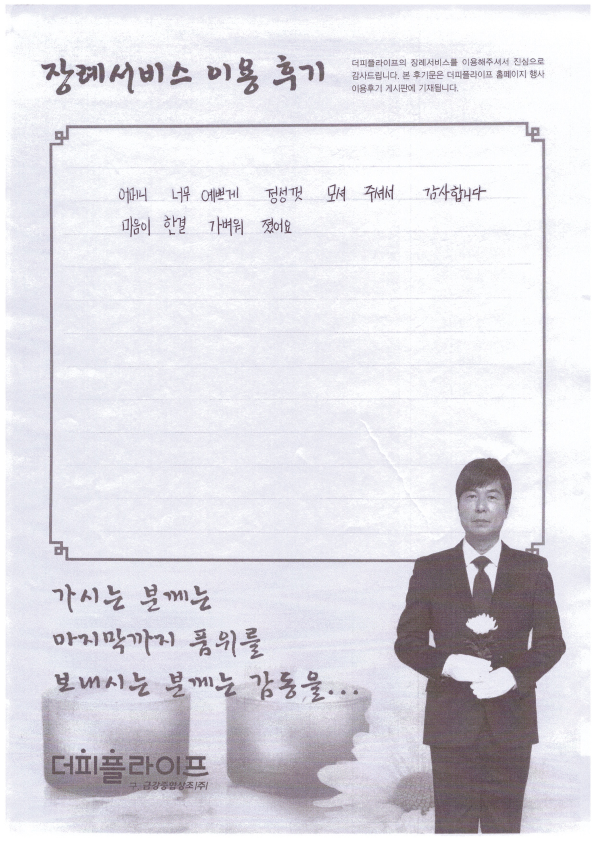 장례서비스 이용 후기
더피플라이프의 장례서비스를 이용해주셔서 진심으로
감사드립니다. 본 후기문은 더피플라이프 홈페이지 행사
이용후기 게시판에 기재됩니다.
어머니 너무 예쁘게 정성껏 모셔 주셔서 감사합니다
마음이 한결 가벼워 졌어요
가시는 분께는
마지막까지 품위를
보내시는 분께는 감동을...
더피플라이프
구. 금강종합상조(주)